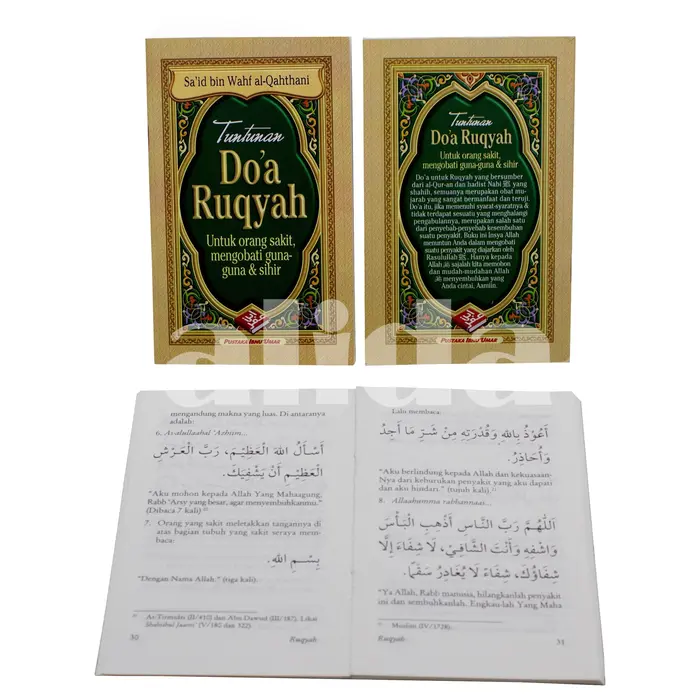 Sa'id bin Wahf al-Qahthani
Tuntunan
Do'a
Ruqyah
Untuk orang sakit,
mengobati guna-
guna & sihir
PUSTAKA IBNU 'UMAR
Tuntunan
Do'a Ruqyah
Untuk orang sakit,
mengobati guna-guna & sihir
Do'a untuk Ruqyah yang bersumber
dari al-Qur-an dan hadist Nabi ﷺ yang
shahih, semuanya merupakan obat mu-
jarab yang sangat bermanfaat dan teruji.
Do'a itu, jika memenuhi syarat-syaratnya &
tidak terdapat sesuatu yang menghalangi
pengabulannya, merupakan salah satu
dari penyebab-penyebab kesembuhan
suatu penyakit. Buku ini Insya Allah
menuntun Anda dalam mengobati
suatu penyakit yang diajarkan oleh
Rasulullah ﷺ. Hanya kepada
Allah sajalah kita memohon
dan mudah-mudahan Allah
menyembuhkan yang
Anda cintai, Aamiin.
PUSTAKA IBNU 'UMAR
alida
mengandung makna yang luas. Di antaranya
adalah:
6. As-alullaahal 'Azhiim...
أَسْأَلُ اللهَ الْعَظِيْمَ، رَبَّ الْعَرْشِ
الْعَظِيْمِ أَنْ يَشْفِيَكَ.
"Aku mohon kepada Allah Yang Mahaagung,
Rabb 'Arsy yang besar, agar menyembuhkanmu."
(Dibaca 7 kali)
7. Orang yang sakit meletakkan tangannya di
atas bagian tubuh yang sakit seraya mem-
baca:
بِسْمِ اللهِ.
"Dengan Nama Allah." (tiga kali).
At-Tirmidzi (II/410) dan Abu Dawud (III/187). Lihat
Shahiihul Jaami' (V/180 dan 322)
30 Ruqyah
Lalu membaca:
أَعُوْذُ بِاللهِ وَقُدْرَتِهِ مِنْ شَرِّ مَا أَجِدُ
وَأُحَاذِرُ.
"Aku berlindung kepada Allah dan kekuasaan-
Nya dari keburukan penyakit yang aku dapati
dan aku hindari." (tujuh kali).
8. Allaahumma rabbannaas...
اَللَّهُمَّ رَبَّ النَّاسِ أَذْهِبِ الْبَأْسَ
وَاشْفِهِ وَأَنْتَ الشَّافِيْ، لَا شِفَاءَ إِلَّا
شِفَاؤُكَ، شِفَاءً لَا يُغَادِرُ سَقَمًا.
"Ya Allah, Rabb manusia, hilangkanlah penyakit
ini dan sembuhkanlah. Engkau-lah Yang Maha
Muslim (IV/1728).
Ruqyah 31